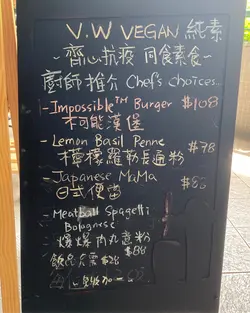 V.W VEGAN 純素
齊心抗疫 同食素食~
廚師推介 Chef's choices...
- Impossible™ Burger $108
不可能漢堡
- Lemon Basil Penne $78
檸檬羅勒長通粉
- Japanese MaMa
日式便當
- Meatball Spagetti
Bolognese
爆爆肉丸意粉 $88